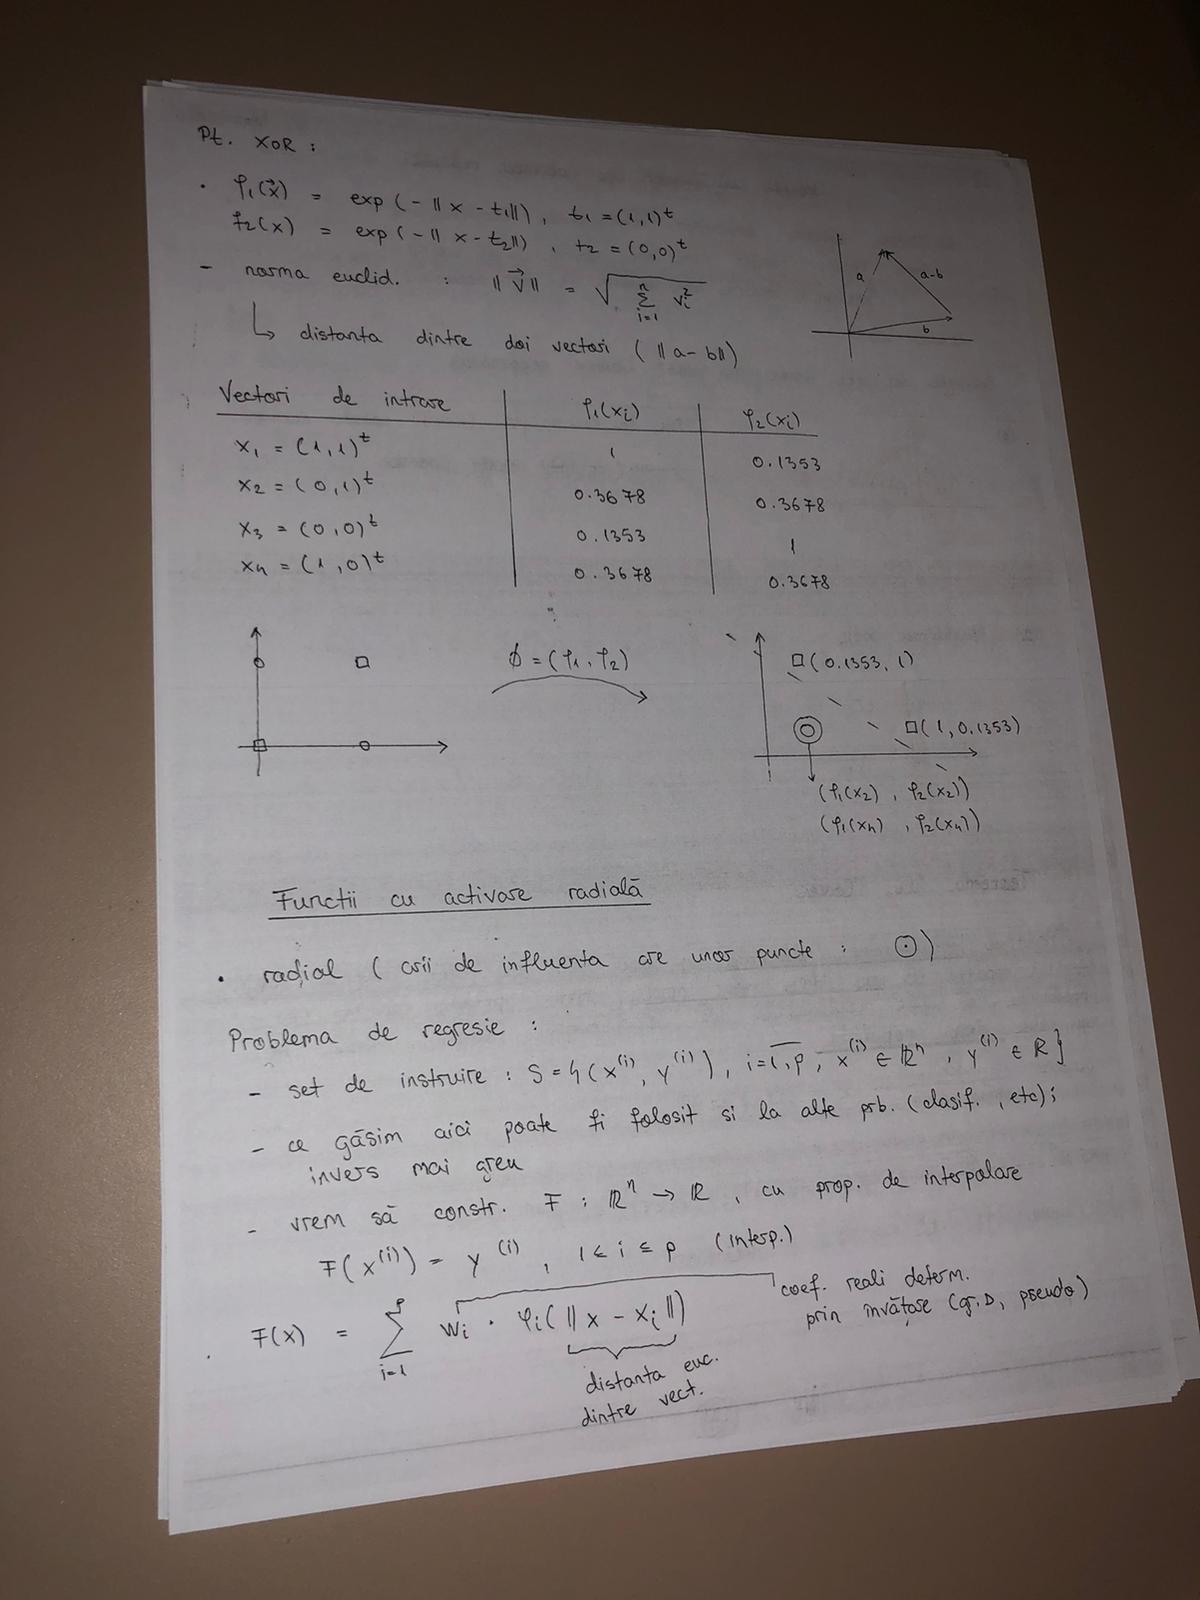 Pt. XOR :
· φ₁(x⃗) = exp(-‖x - t₁‖), t₁ = (1,1)ᵗ
φ₂(x) = exp(-‖x - t₂‖), t₂ = (0,0)ᵗ
- norma euclid. : ‖v⃗‖ = √ Σ vᵢ² (i=1, n)
↳ distanta dintre doi vectori (‖a-b‖)
a a-b
b
Vectori de intrare φ₁(xᵢ) φ₂(xᵢ)
x₁ = (1,1)ᵗ 1 0.1353
x₂ = (0,1)ᵗ 0.3678 0.3678
x₃ = (0,0)ᵗ 0.1353 1
x₄ = (1,0)ᵗ 0.3678 0.3678
ϕ = (φ₁, φ₂)
(0.1353, 1)
(1, 0.1353)
(φ₁(x₂), φ₂(x₂))
(φ₁(x₄), φ₂(x₄))
Functii cu activare radială
· radial (arii de influenta ale unor puncte : ⊙)
Problema de regresie :
- set de instruire : S = {(x⁽ⁱ⁾, y⁽ⁱ⁾), i=1,p, x⁽ⁱ⁾ ∈ ℝⁿ, y⁽ⁱ⁾ ∈ ℝ}
- ce găsim aici poate fi folosit si la alte prb. (clasif., etc);
invers mai greu
- vrem să constr. F : ℝⁿ → ℝ, cu prop. de interpolare
F(x⁽ⁱ⁾) = y⁽ⁱ⁾, 1 ≤ i ≤ p (interp.)
coef. reali determ.
prin învățare (gr.D, pseudo)
· F(x) = Σ wᵢ · φᵢ(‖x - xᵢ‖) (i=1, p)
distanta euc.
dintre vect.